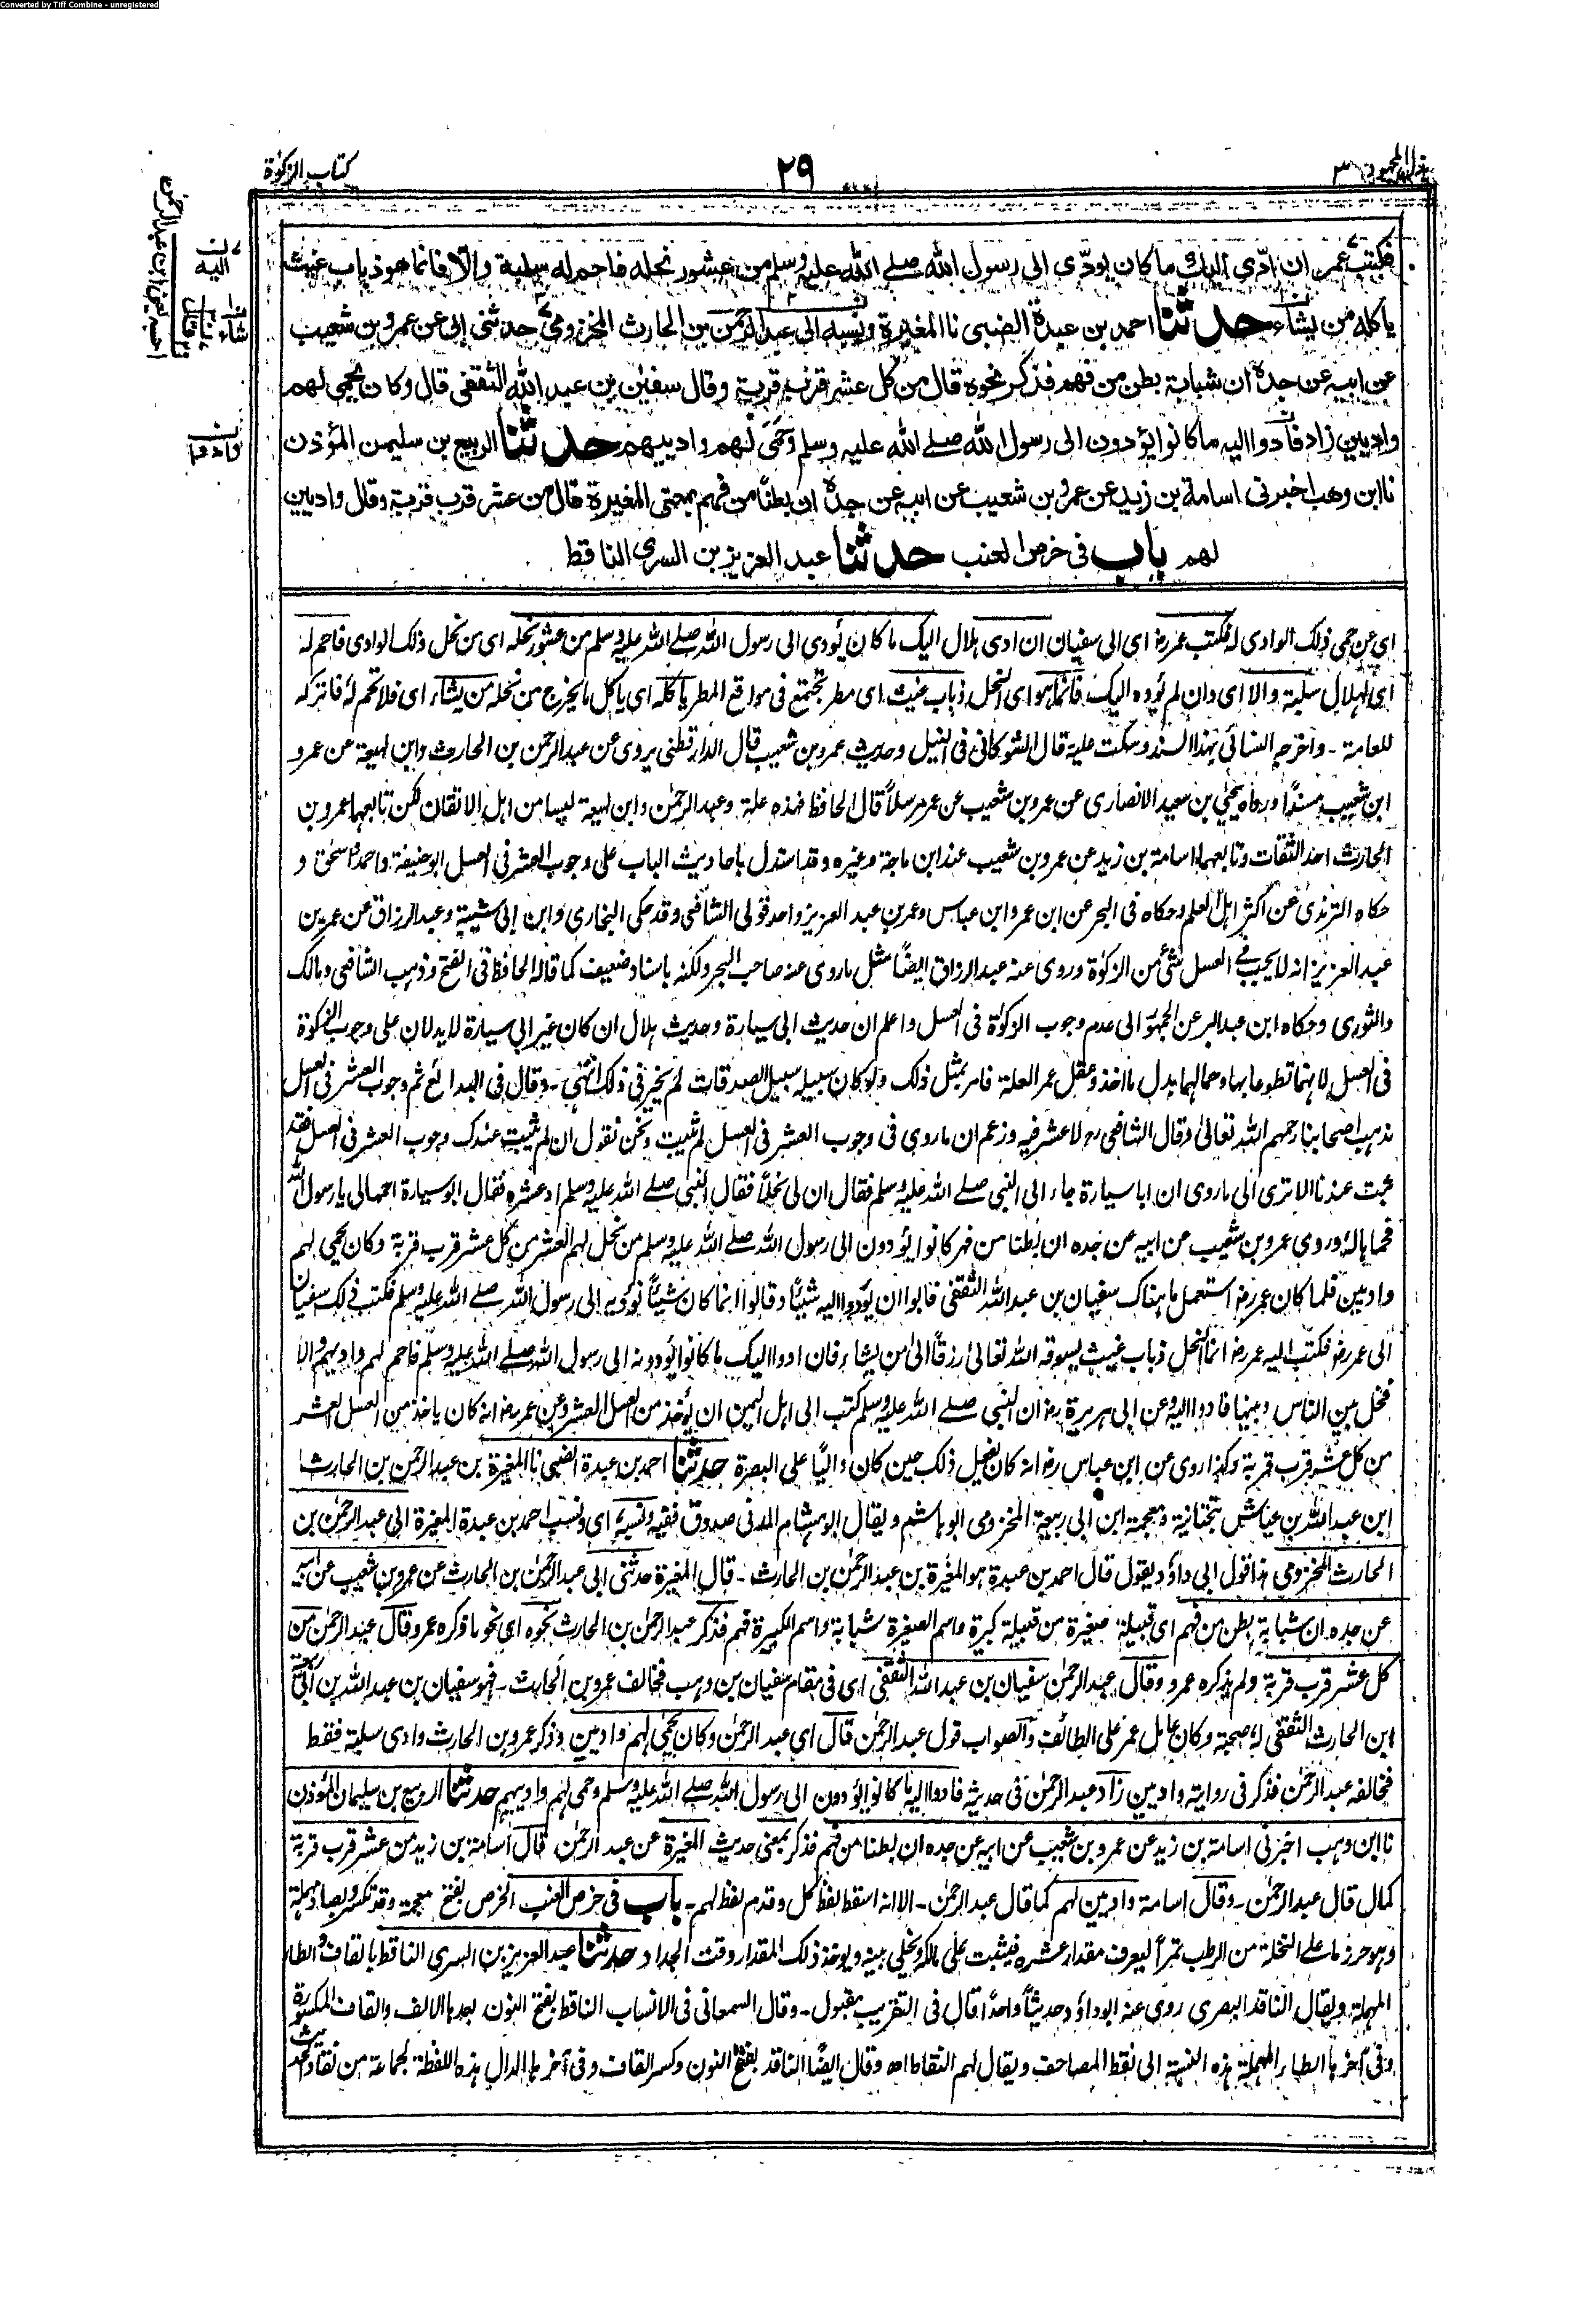 Converted by Tiff Combine - unregistered
بذل المجهود ج ٣
٢٩
كتاب الزكوة
فكتب عمر ان ادّى اليك ما كان يودّى الى رسول الله صلے الله عليه وسلم من عشور نحله فاحم له سلبة والّا فانما هو ذباب غيث
ياكله من يشاء حدثنا احمد بن عبدة الضبى نا المغيرة ونسبه الى عبد الرحمن بن الحارث المخزومى حدثنى ابى عن عمرو بن شعيب
عن ابيه عن جده ان شبابة بطن من فهم فذكر نحوه قال من كل عشر قرب قربة وقال سفين بن عبد الله الثقفى قال وكان يحمى لهم
واديين زاد فادوا اليه ما كانوا يؤدون الى رسول الله صلے الله عليه وسلم وحمى لهم واديهم حدثنا الربيع بن سليمن المؤذن
نا ابن وهب اخبرنى اسامة بن زيد عن عمرو بن شعيب عن ابيه عن جده ان بطنا من فهم بمعنى المغيرة قال من عشر قرب قربة وقال واديين
لهم باب فى خرص العنب حدثنا عبد العزيز بن السرى الناقط
اى عن حمى ذلك الوادى له فكتب عمر رض اى الى سفيان ان ادى هلال اليك ما كان يؤدى الى رسول الله صلے الله عليه وسلم من عشور نحله اى من نحل ذلك الوادى فاحم له
اى لهلال سلبة والا اى وان لم يؤده اليك فانما هو اى النحل ذباب غيث اى مطر تجتمع فى مواقع المطر ياكله اى ياكل ما يخرج من نحله من يشاء اى فلا تحم له فاتركه
للعامة - واخرجه النسائى بهذا السند وسكت عليه قال الشوكانى فى النيل وحديث عمرو بن شعيب قال الدارقطنى يروى عن عبد الرحمن بن الحارث وابن لهيعة عن عمرو
ابن شعيب مسندا ورواه يحيى بن سعيد الانصارى عن عمرو بن شعيب عن عمر مرسلاً قال الحافظ فهذه علة وعبد الرحمن وابن لهيعة ليسا من اهل الاتقان لكن تابعهما عمرو بن
الحارث احد الثقات وتابعهما اسامة بن زيد عن عمرو بن شعيب عند ابن ماجة وغيره وقد استدل باحاديث الباب على وجوب العشر فى العسل ابو حنيفة واحمد واسحق و
حكاه الترمذى عن اكثر اهل العلم وحكاه فى البحر عن ابن عمر وابن عباس وعمر بن عبد العزيز واحد قولى الشافعى وقد حكى البخارى وابن ابى شيبة وعبد الرزاق عن عمر بن
عبد العزيز انه لا يجب فى العسل شئ من الزكوة وروى عنه عبد الرزاق ايضاً مثل ما روى عنه صاحب البحر ولكنه باسناد ضعيف كما قاله الحافظ فى الفتح وذهب الشافعى ومالك
والثورى وحكاه ابن عبد البر عن الجمهور الى عدم وجوب الزكوة فى العسل واعلم ان حديث ابى سيارة وحديث هلال ان كان غير ابى سيارة لا يدلان على وجوب الزكوة
فى العسل لانهما تطوعا بها وحمالهما بدل ما اخذ وعقل عمر العلة فامر بمثل ذلك ولو كان سبيله سبيل الصدقات لم يخير فى ذلك انتهى - وقال فى البدائع ثم وجوب العشر فى العسل
مذهب اصحابنا رحمهم الله تعالى وقال الشافعى رح لا عشر فيه وزعم ان ما روى فى وجوب العشر فى العسل لم يثبت ونحن نقول ان لم يثبت عندك وجوب العشر فى العسل فقد
ثبت عندنا الا ترى الى ما روى ان ابا سيارة جاء الى النبى صلے الله عليه وسلم فقال ان لى نحلاً فقال النبى صلے الله عليه وسلم اد عشره فقال ابو سيارة احمها لى يا رسول الله
فحماها له وروى عمرو بن شعيب عن ابيه عن جده ان بطنا من فهر كانوا يؤدون الى رسول الله صلے الله عليه وسلم من نحل لهم العشر من كل عشر قرب قربة وكان يحمى لهم
واديين فلما كان عمر رض استعمل ما هناك سفيان بن عبد الله الثقفى فابوا ان يؤدوا اليه شيئا وقالوا انما كان شيئا نؤديه الى رسول الله صلے الله عليه وسلم فكتب ذلك سفيان
الى عمر رض فكتب اليه عمر رض انما النحل ذباب غيث يسوقه الله تعالى رزقاً الى من يشاء فان ادوا اليك ما كانوا يؤدونه الى رسول الله صلے الله عليه وسلم فاحم لهم واديهم والا
فخل بين الناس وبينها فادوا اليه وعن ابى هريرة رض ان النبى صلے الله عليه وسلم كتب الى اهل اليمن ان يؤخذ من العسل العشر وعن عمر رض انه كان ياخذ من العسل العشر
من كل عشر قرب قربة وكذا روى عن ابن عباس رض انه كان يفعل ذلك حين كان والياً على البصرة حدثنا احمد بن عبدة الضبى نا المغيرة بن عبد الرحمن بن الحارث
ابن عبد الله بن عياش بتحتانية ومعجمة ابن ابى ربيعة المخزومى ابو هاشم ويقال ابو هشام المدنى صدوق فقيه ونسبه اى ونسب احمد بن عبدة المغيرة الى عبد الرحمن بن
الحارث المخزومى هذا قول ابى داؤد يقول قال احمد بن عبدة هو المغيرة بن عبد الرحمن بن الحارث - قال المغيرة حدثنى ابى عبد الرحمن بن الحارث عن عمرو بن شعيب عن ابيه
عن جده ان شبابة بطن من فهم اى قبيلة صغيرة من قبيلة كبيرة واسم الصغيرة شبابة واسم الكبيرة فهم فذكر عبد الرحمن بن الحارث نحوه اى نحو ما ذكره عمرو قال عبد الرحمن من
كل عشر قرب قربة ولم يذكره عمرو وقال عبد الرحمن سفيان بن عبد الله الثقفى اى فى مقام سفيان بن وهب فخالف عمرو بن الحارث - فهو سفيان بن عبد الله بن ابى ربيعة
ابن الحارث الثقفى له صحبة وكان عامل عمر على الطائف والصواب قول عبد الرحمن قال اى عبد الرحمن وكان يحمى لهم واديين وذكر عمرو بن الحارث وادى سلبة فقط
فخالفه عبد الرحمن فذكر فى روايته واديين زاد عبد الرحمن فى حديثه فادوا اليه ما كانوا يؤدون الى رسول الله صلے الله عليه وسلم وحمى لهم واديهم حدثنا الربيع بن سليمان المؤذن
نا ابن وهب اخبرنى اسامة بن زيد عن عمرو بن شعيب عن ابيه عن جده ان بطنا من فهم فذكر بمعنى حديث المغيرة عن عبد الرحمن قال اسامة بن زيد من عشر قرب قربة
كما قال عبد الرحمن - وقال اسامة واديين لهم كما قال عبد الرحمن - الا انه اسقط لفظ كل وقدم لفظ لهم - باب فى خرص العنب الخرص بفتح معجمة وقد تكسر وبصاد مهملة
وهو حرز ما على النخلة من الرطب تمراً ليعرف مقدار عشره فيثبت على مالكه ويخلى بينه ويؤخذ ذلك المقدار وقت الجداد حدثنا عبد العزيز بن السرى الناقط بالقاف والطاء
المهملة ويقال الناقد البصرى روى عنه ابو داؤد حديثاً واحداً قال فى التقريب مقبول - وقال السمعانى فى الانساب الناقط بفتح النون بعدها الالف والقاف المكسورة
وفى آخرها الطاء المهملة هذه النسبة الى نقط المصاحف ويقال لهم النقاط اه وقال ايضاً الناقد بفتح النون وكسر القاف وفى آخرها الدال هذه اللفظة لجماعة من نقاد الحديث
ن
اليه
شاء
قال
احسبه يعنى ابن عبد الرحمن
ن